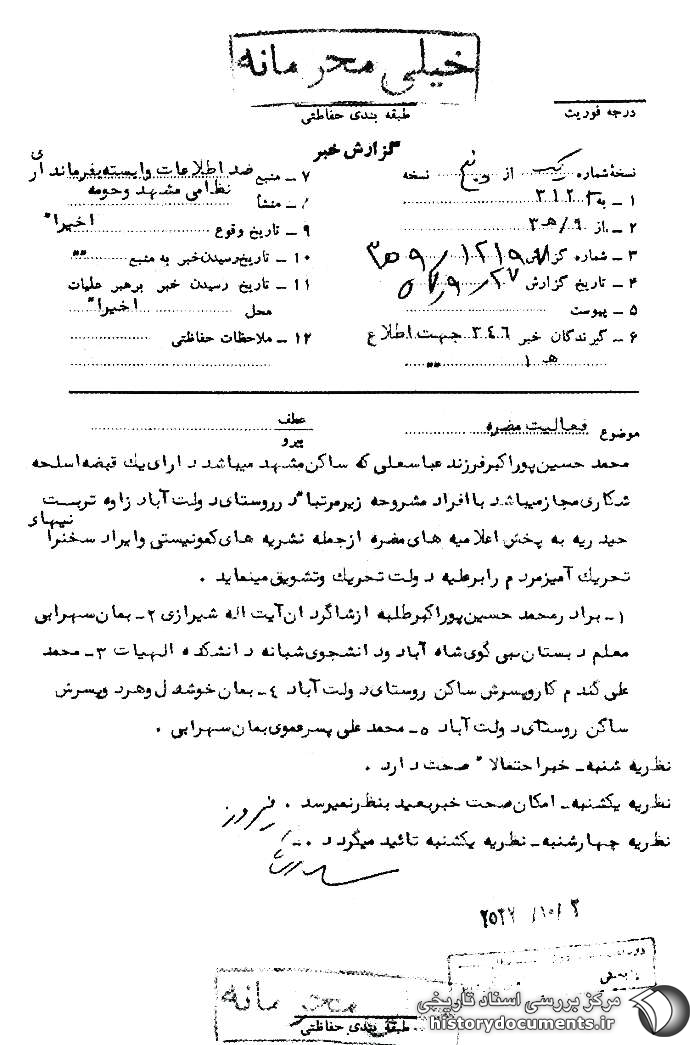 خیلی محرمانه
طبقه بندی حفاظتی
درجه فوریت
گزارش خبر
نسخهٔ شماره یک از پنج نسخه
۱ ـ به ۳۱۲
۲ ـ از ۹/ هـ ۳
۳ ـ شماره گزارش
۴ ـ تاریخ گزارش ۵۷/۹/۲۷
۵ ـ پیوست
۶ ـ گیرندگان خبر ۳۴۶ جهت اطلاع
هـ ۱ ״
۷ ـ منبع ضد اطلاعات وابسته بفرمانداری
نظامی مشهد وحومه
۸ ـ منشأ
۹ ـ تاریخ وقوع اخیرا"
۱۰ ـ تاریخ رسیدن خبر به منبع ""
۱۱ ـ تاریخ رسیدن خبر برهبر عملیات
محل اخیرا"
۱۲ ـ ملاحظات حفاظتی
موضوع فعالیت مضره
عطف
پیرو
محمد حسین پوراکبر فرزند عباسعلی که ساکن مشهد میباشد دارای یك قبضه اسلحه
شکاری مجاز میباشد با افراد مشروحه زیر مرتبا" در روستای دولت آباد زاوه تربت
حیدریه به پخش اعلامیه های مضره ازجمله نشریه های کمونیستی وایراد سخنرانیهای
تحریك آمیز مردم را برعلیه دولت تحریك وتشویق مینماید .
۱ـ برادر محمد حسین پوراکبر طلبه ازشاگردان آیت اله شیرازی ۲ـ بمان سهرابی
معلم دبستان سی گوی شاه آباد ودانشجوی شبانه دانشکده الهیات ۳ـ محمد
علی گندم کار وپسرش ساکن روستای دولت آباد ۴ـ بمان خوشدل وهردوپسرش
ساکن روستای دولت آباد ۵ـ محمد علی پسرعموی بمان سهرابی .
نظریه شنبه ـ خبر احتمالا" صحت دارد .
نظریه یکشنبه ـ امکان صحت خبر بعید بنظر نمیرسد . فیروز
نظریه چهارشنبه ـ نظریه یکشنبه تائید میگردد .
۲۵۳۷/۱۰/۲
محرمانه
طبقه بندی حفاظتی
مرکز بررسی اسناد تاریخی
historydocuments.ir